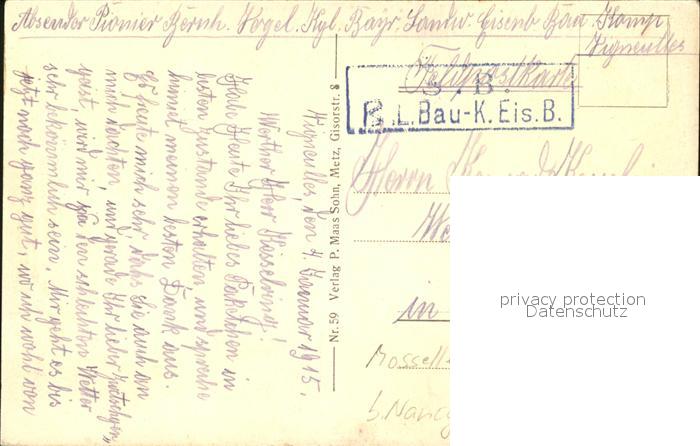 Absender Pionier Bernh. Vogel. Kgl. Bayr. Landw. Eisenb Bau Komp
Vigneulles
Feldpostkarte
S. B.
K. L. Bau-K. Eis. B.
Vigneulles, den 4. Januar 1915.
Werther Herr
Habe Heute Ihr liebes Päkchen in
besten Zustande erhalten und spreche
Ihnen meinen besten Dank aus.
Es freute mich sehr, dass Sie auch an
mich dachten, und gerade Ihr lieber
geist, wird mir bei dem schlechten Wetter
sehr bekömmlich sein. Mir geht es bis
jetzt noch ganz gut, wo ich wohl von
Nr. 59 Verlag P. Maas Sohn, Metz, Gisorstr. 8
Herrn
in
Mosell
b. Nancy
privacy protection
Datenschutz